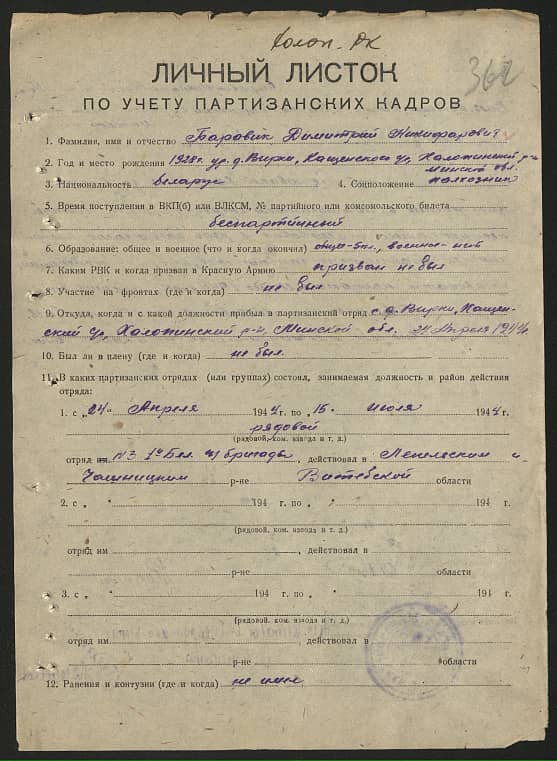 Холоп. РК
362
ЛИЧНЫЙ ЛИСТОК
ПО УЧЕТУ ПАРТИЗАНСКИХ КАДРОВ
1. Фамилия, имя и отчество Боровик Димитрий Никифарович
2. Год и место рождения 1928г. ур. д. Вирки, Кащенского с/с, Холопинский р-н
Минской обл.
3. Национальность беларус 4. Соцположение колхозник
5. Время поступления в ВКП(б) или ВЛКСМ, № партийного или комсомольского билета
беспартийный
6. Образование: общее и военное (что и когда окончил) общее-5кл., военное-нет
7. Каким РВК и когда призван в Красную Армию призван не был
8. Участие на фронтах (где и когда) не был
9. Откуда, когда и с какой должности прибыл в партизанский отряд с д. Вирки, Кащен-
ский с/с, Холопинский р-н, Минской обл. 24 Апреля 1944г.
10. Был ли в плену (где и когда) не был.
11. В каких партизанских отрядах (или группах) состоял, занимаемая должность и район действия
отряда:
1. с „24“ Апреля 1944 г. по „15“ июля 1944 г.
рядовой
(рядовой, ком. взвода и т. д.)
отряд №3 1й Бел. п/бригады, действовал в Лепельским и
Чашницким р-не Витебской области
2. с „ “ 194 г. по „ “ 194 г.
(рядовой, ком. взвода и т. д.)
отряд им , действовал в
р-не области
3. с „ “ 194 г. по „ “ 194 г.
(рядовой, ком. взвода и т. д.)
отряд им. , действовал в
р-не области
12. Ранения и контузии (где и когда) не имел